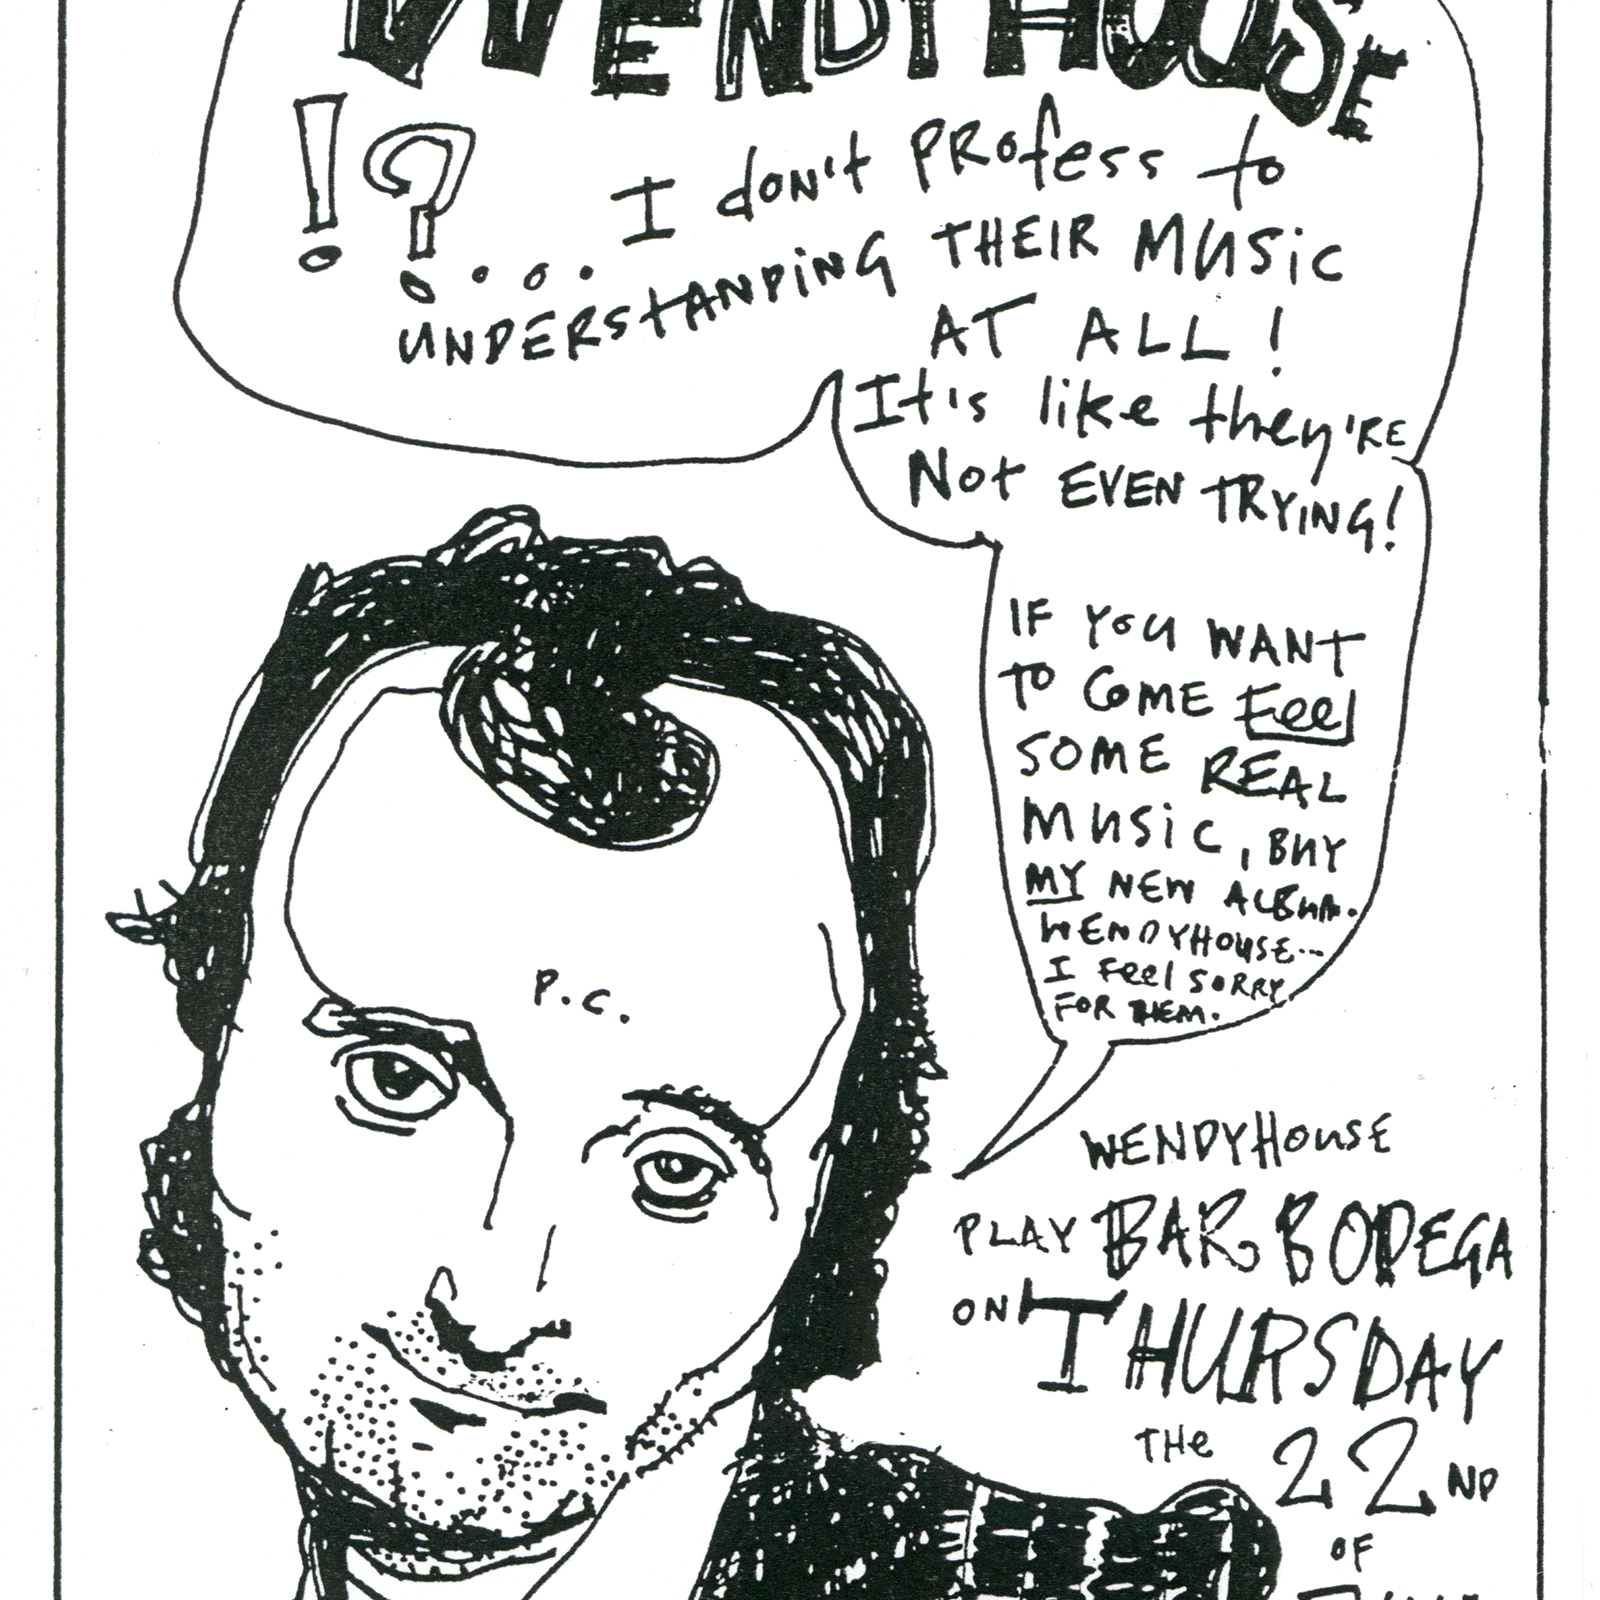 WENDYHOUSE
!?... I don't PROfess to
UNDERStANDiNG THEIR MUSic
AT ALL!
It's like they'RE
Not EVEN TRYING!
IF YOU WANT
TO COME Feel
SOME REAL
MUSiC, BUY
MY NEW ALBUM.
WENDYHOUSE...
I Feel SORRY
FOR THEM.
P.C.
WENDYHOUSE
PLAY BAR BODEGA
ON THURSDAY
THe 22ND
OF